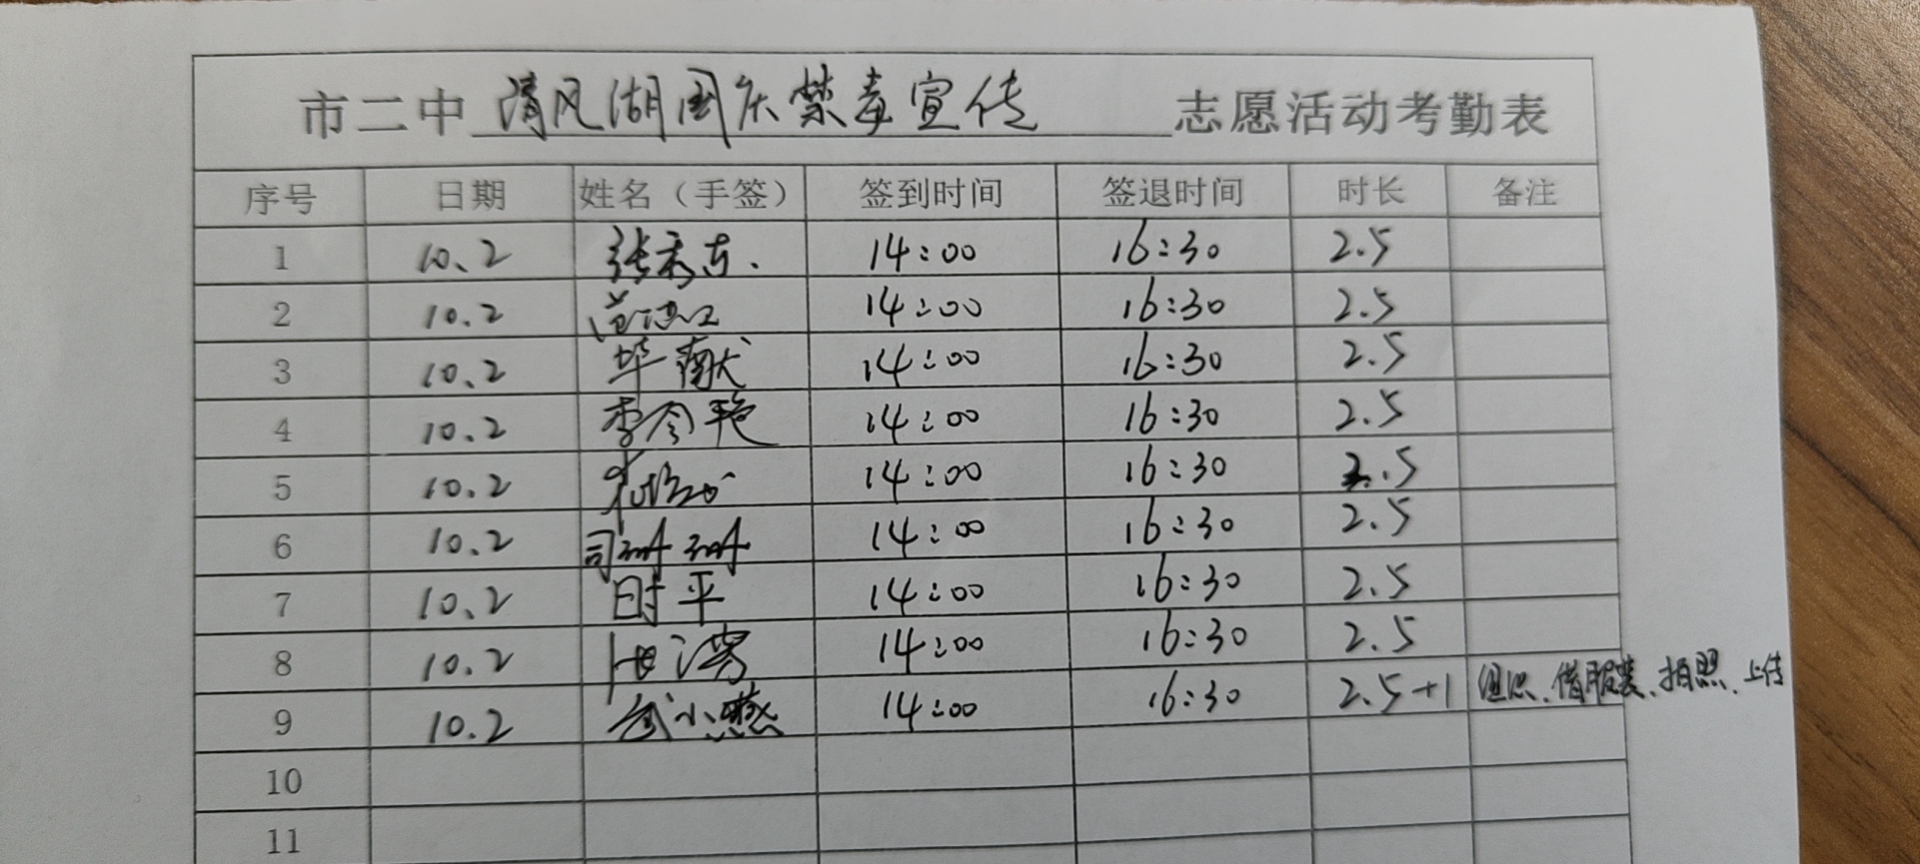 市二中 清风湖国庆禁毒宣传 志愿活动考勤表
序号 日期 姓名（手签） 签到时间 签退时间 时长 备注
1 10.2 14:00 16:30 2.5
2 10.2 14:00 16:30 2.5
3 10.2 毕献 14:00 16:30 2.5
4 10.2 李令艳 14:00 16:30 2.5
5 10.2 14:00 16:30 2.5
6 10.2 14:00 16:30 2.5
7 10.2 时平 14:00 16:30 2.5
8 10.2 14:00 16:30 2.5
9 10.2 武小燕 14:00 16:30 2.5+1 组织、借服装、拍照、上传
10
11